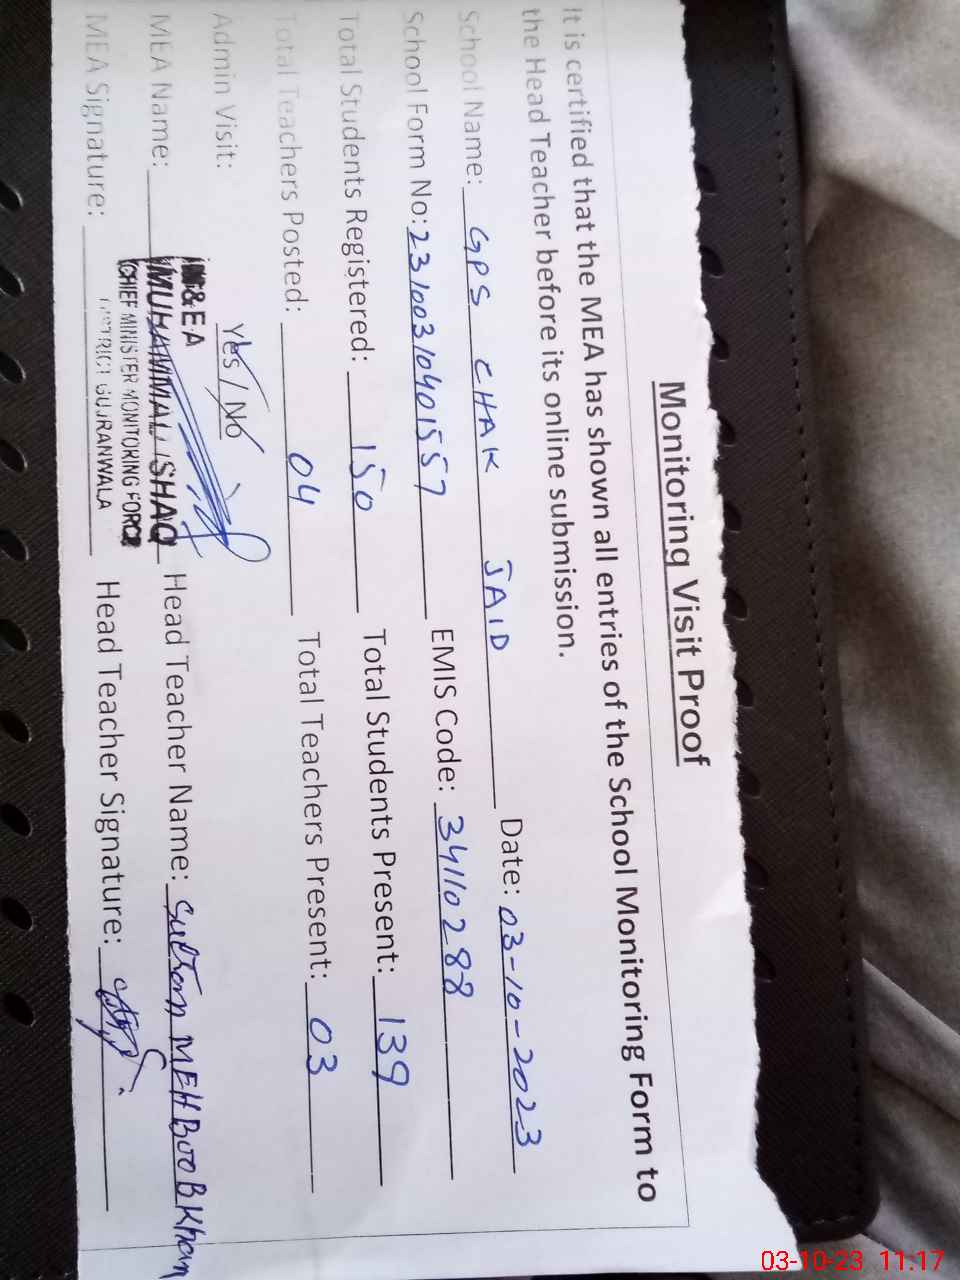 Monitoring Visit Proof
It is certified that the MEA has shown all entries of the School Monitoring Form to
the Head Teacher before its online submission.
School Name: GPS CHAK JAID Date: 03-10-2023
School Form No: 23100310401557 EMIS Code: 34110288
Total Students Registered: 150 Total Students Present: 139
Total Teachers Posted: 04 Total Teachers Present: 03
Admin Visit: Yes / No
M&E A
MEA Name: MUHAMMAD ISHAQ Head Teacher Name: Sultan MEHBOOB Khan
CHIEF MINISTER MONITORING FORCE
DISTRICT GUJRANWALA
MEA Signature: Head Teacher Signature:
03-10-23 11:17